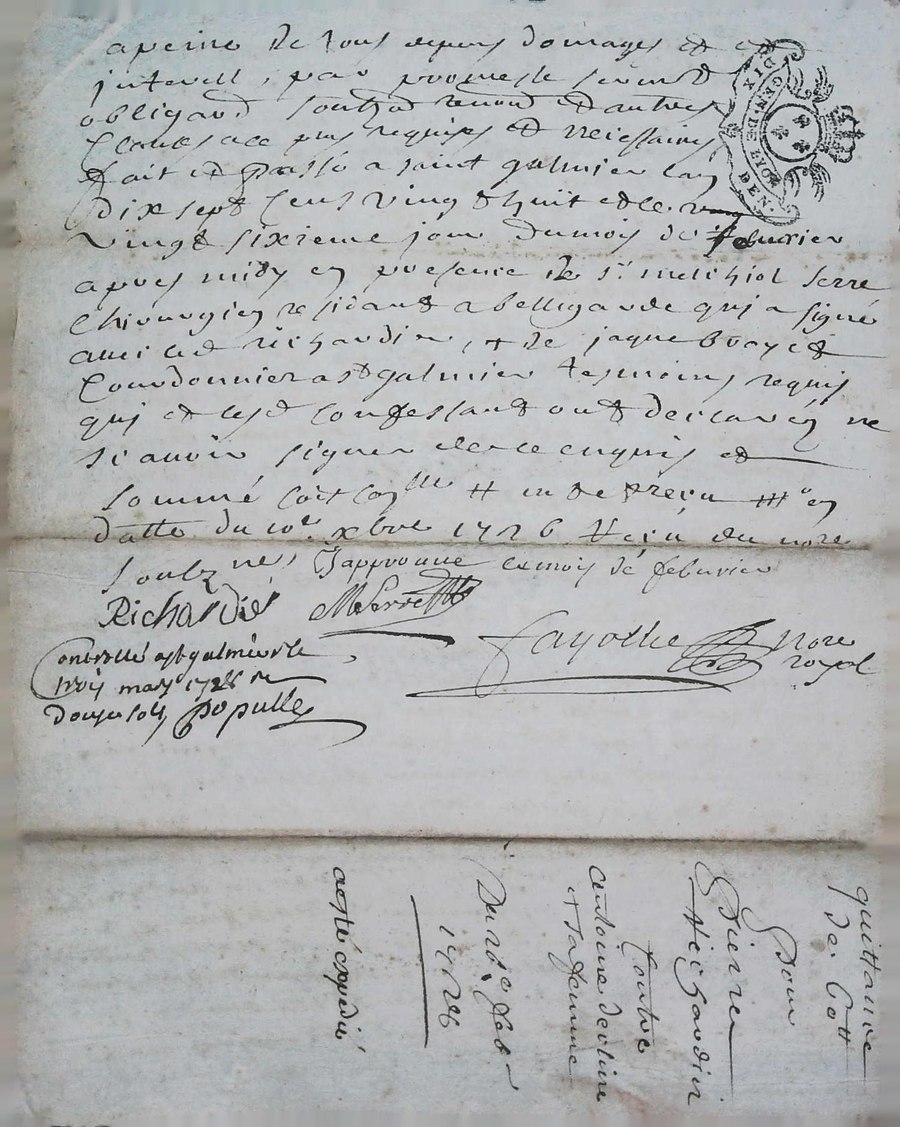 a peine de tous depens domages et
interest, par promesse serment
obligaon renon et autres
Clauses requises et necessaires
fait et passé a saint galmier lan
Dix sept Cens Ving & huit et le
vingt sixieme jour du mois de februrier
apres midy en presence de sr melchiol serre
Chirurgien residant a bellegarde qui a signé
avec led richardier, & de jaque
Courdonnier a st galmier tesmoins requis
qui et lesd Confessant ont declarés ne
scavoir signer de ce enquis et
sommé
datte du 10e xbre 1726 du nore
soubz nes J'approuve ce mois de februrier
Richardié MSerre
fayolle nore
royal
Controllé a st galmier le
trois mars 1728 R
Douze sols populle
DIX
GEN. DE LYON
DEN.
quittance
de
Pour
Pierre
Richardier
Contre
antoine
& sa femme
Du 26e feb.
1728
acte expedié